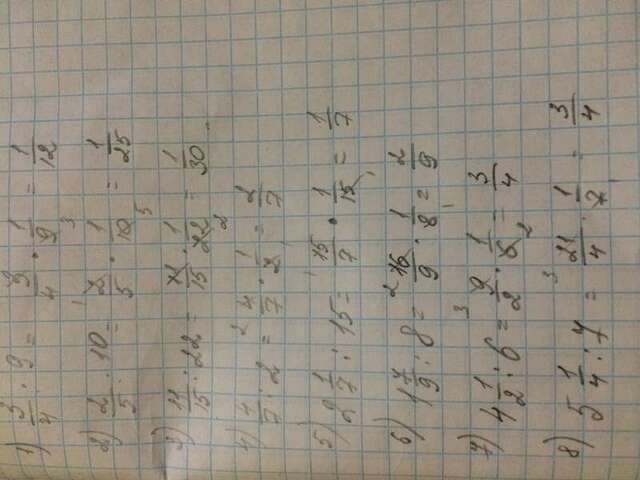 1) 3/4 : 9 = 3/4 · 1/9 = 1/12
2) 2/5 : 10 = 2/5 · 1/10 = 1/25
3) 11/15 : 22 = 11/15 · 1/22 = 1/30
4) 4/7 : 2 = 4/7 · 1/2 = 2/7
5) 2 1/7 : 15 = 15/7 · 1/15 = 1/7
6) 1 7/9 : 8 = 16/9 · 1/8 = 2/9
7) 4 1/2 : 6 = 9/2 · 1/6 = 3/4
8) 5 1/4 : 7 = 21/4 · 1/7 = 3/4